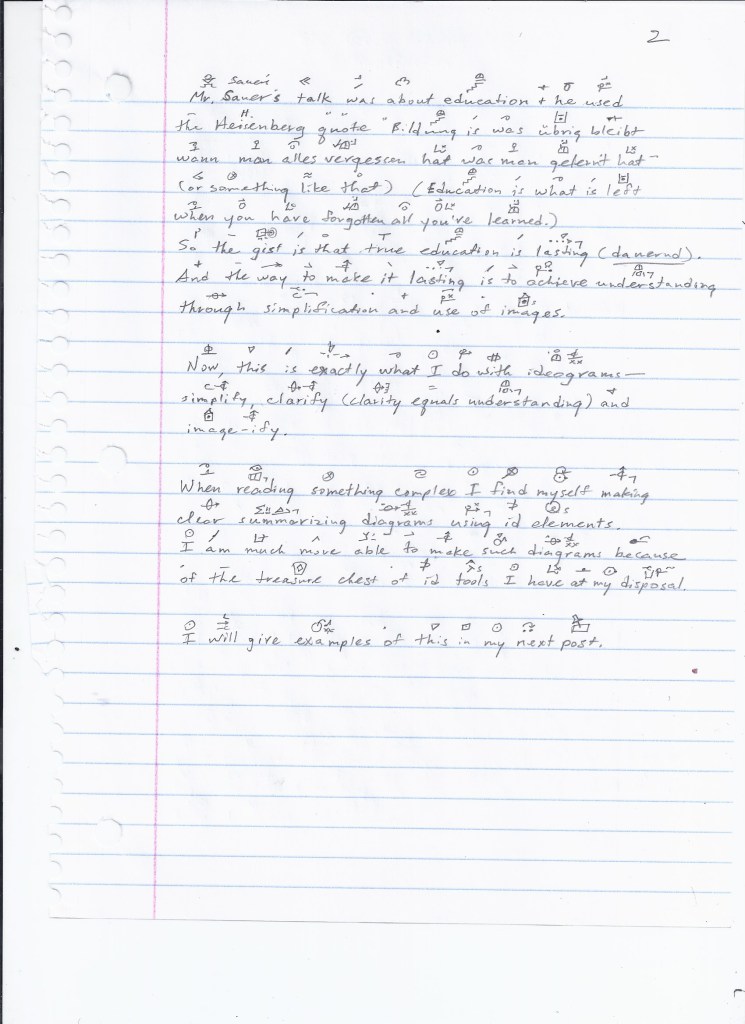 2
Sauer's
Mr. Sauer's talk was about education + he used
H.
the Heisenberg quote "Bildung is was übrig bleibt
wann man alles vergessen hat was man gelernt hat —
(or something like that) (Education is what is left
when you have forgotten all you've learned.)
So the gist is that true education is lasting (dauernd).
And the way to make it lasting is to achieve understanding
through simplification and use of images.
Now, this is exactly what I do with ideograms—
simplify, clarify (clarity equals understanding) and
image-ify.
When reading something complex I find myself making
clear summarizing diagrams using id elements.
I am much more able to make such diagrams because
of the treasure chest of id tools I have at my disposal.
I will give examples of this in my next post.